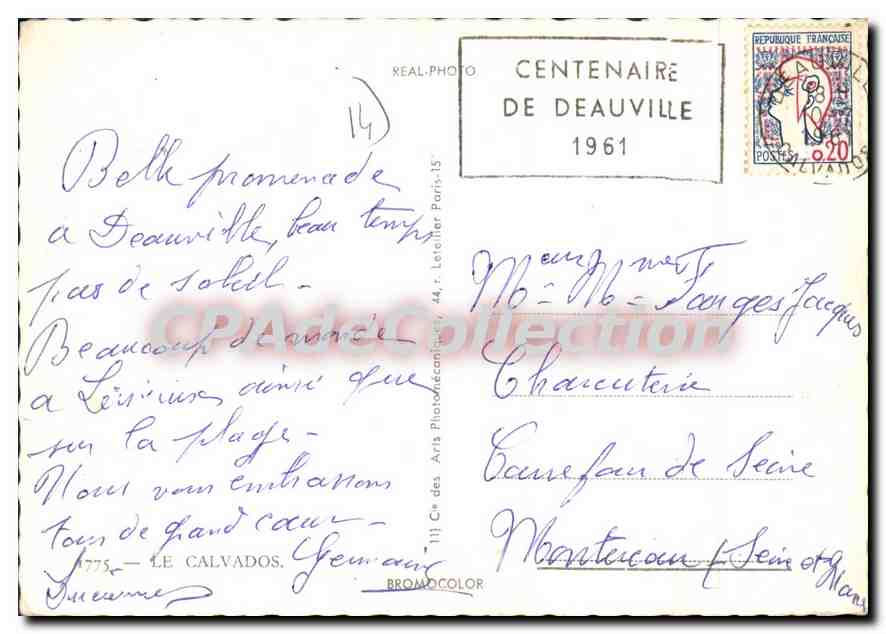 REAL-PHOTO
CENTENAIRE
DE DEAUVILLE
1961
REPUBLIQUE FRANÇAISE
POSTES 0,20
CALVADOS
14
Belle promenade
a Deauville, beau temps
pas de soleil -
Beaucoup de monde
a Lisieux ainsi que
sur la plage -
Nous vous embrassons
tous de grand cœur -
Germaine
1775. — LE CALVADOS.
BROMOCOLOR
Cie des Arts Photomécaniques, 44, r. Letellier Paris-15
Mr Mme Farges Jacques
Charcuterie
Carrefour de Seine
Montereau (Seine et
CPAdeCollection